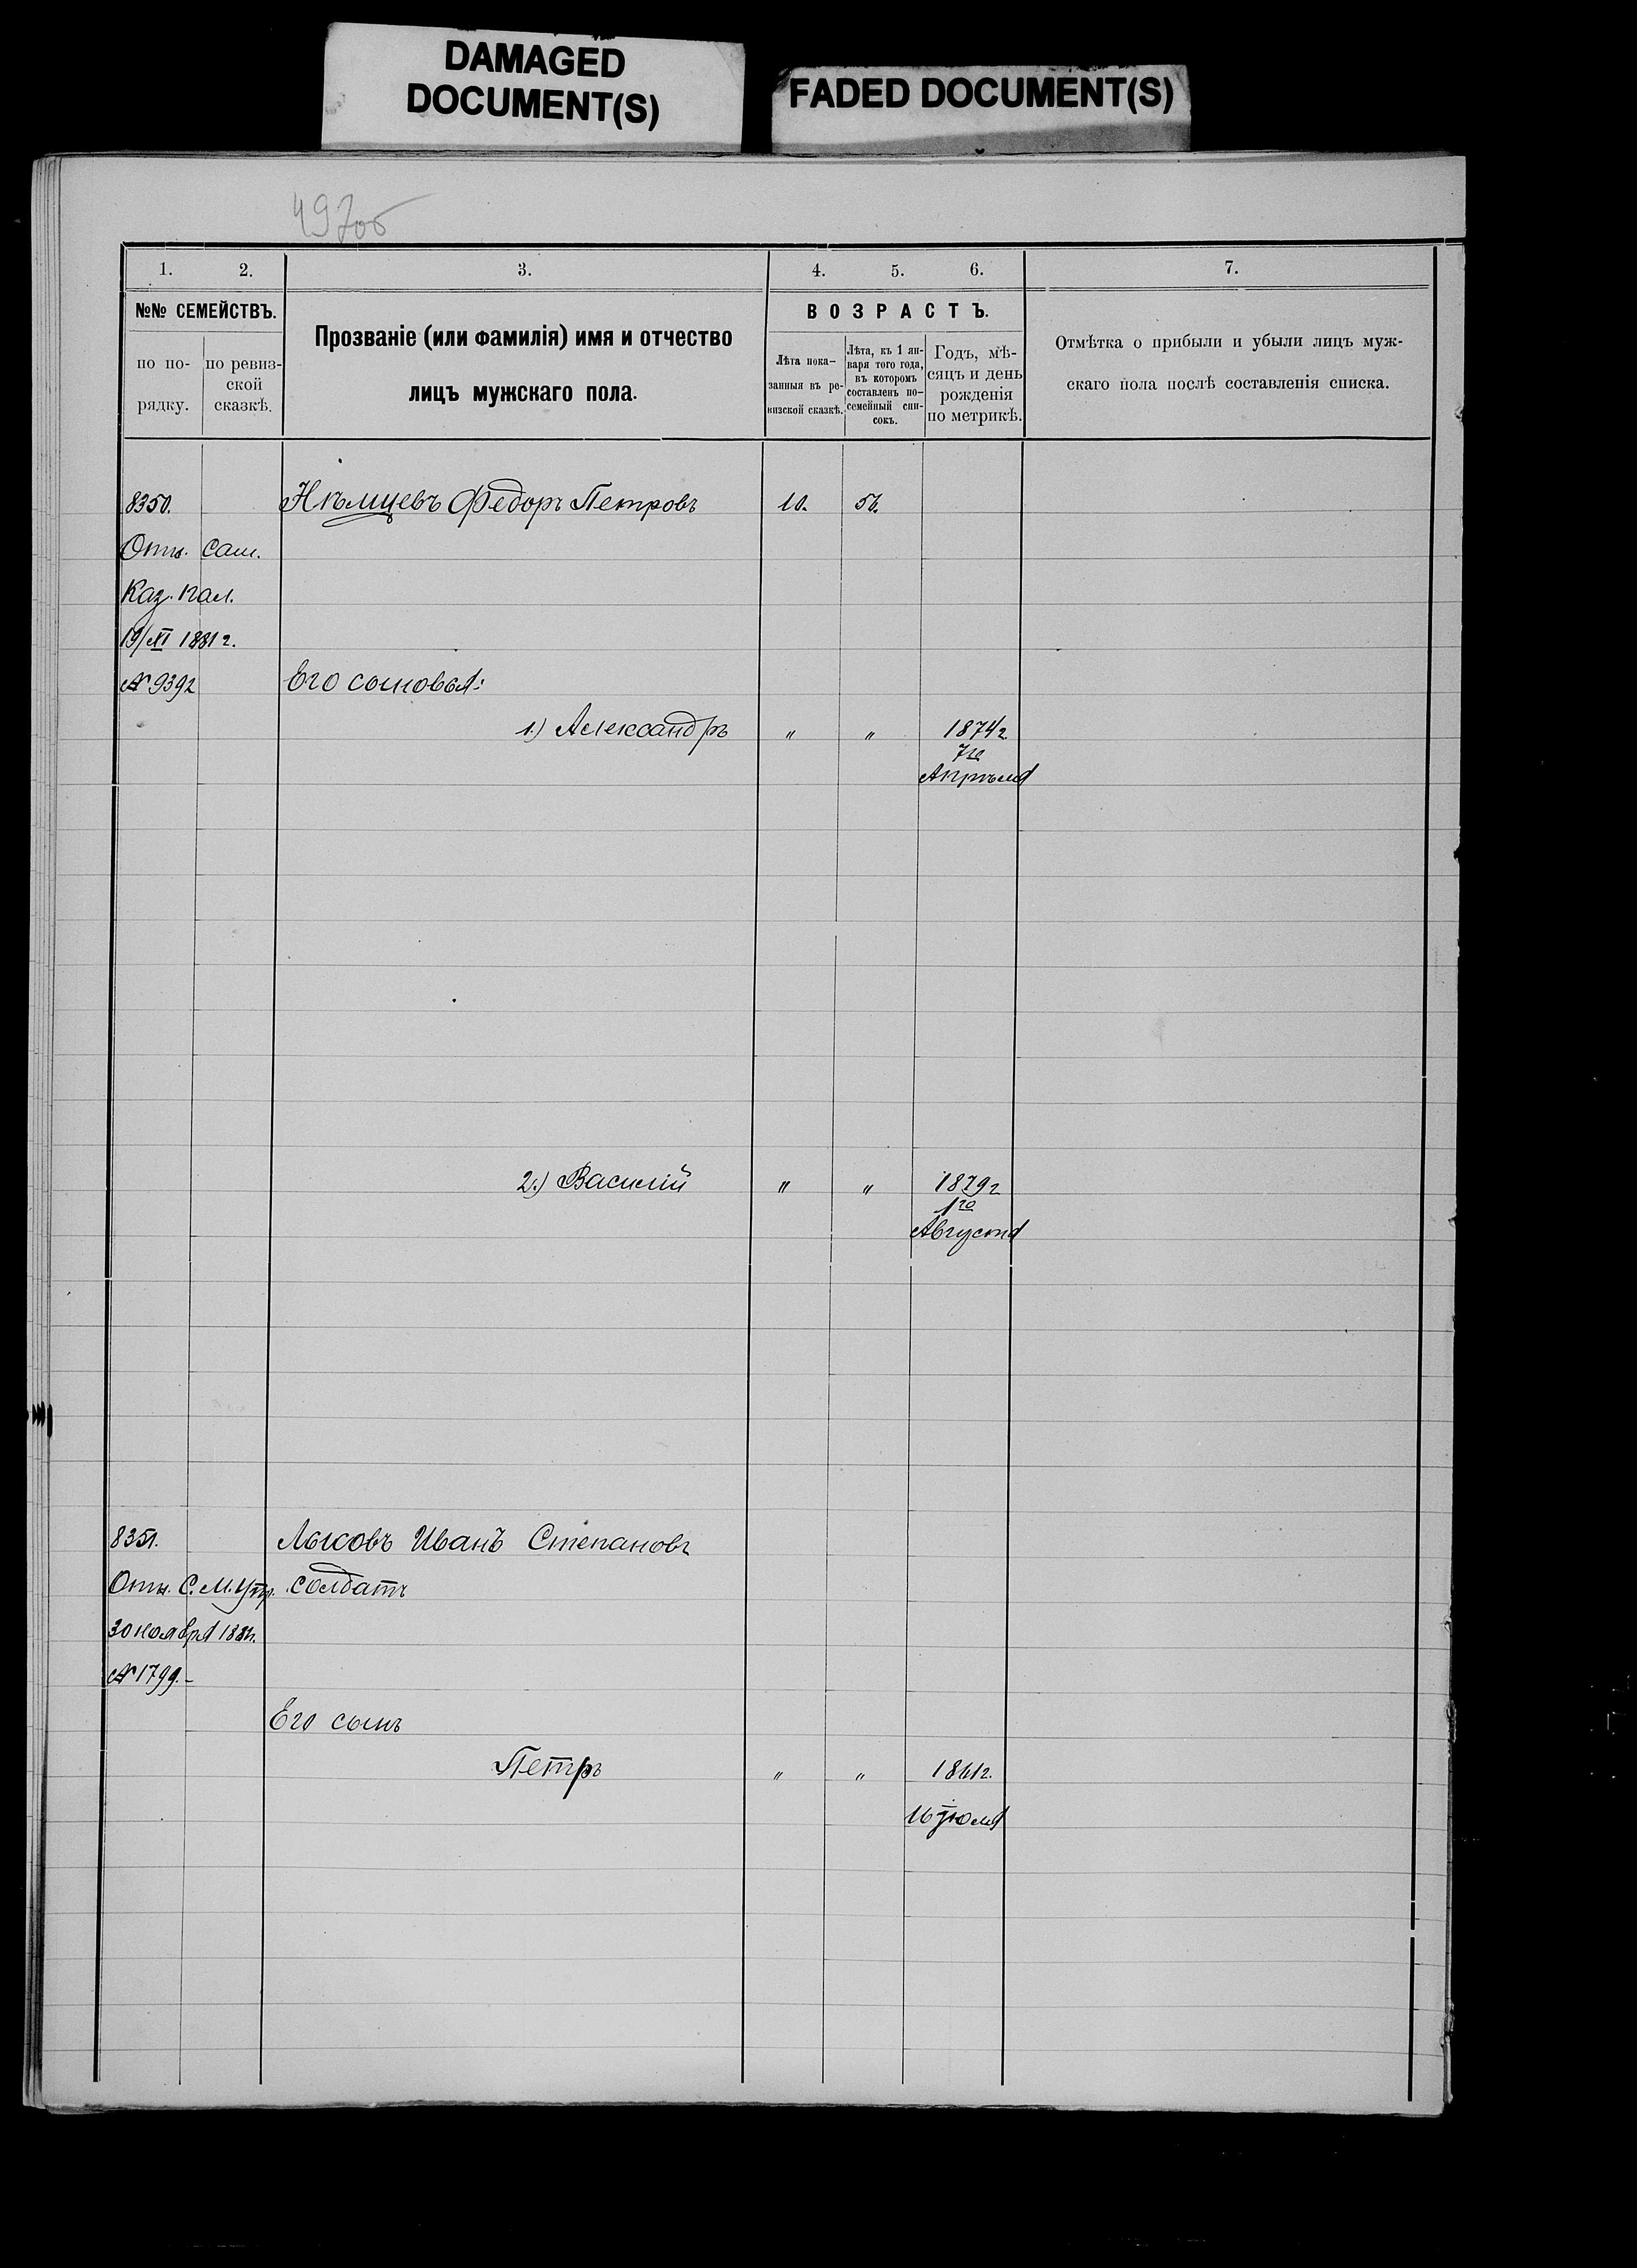 DAMAGED
DOCUMENT(S)
FADED DOCUMENT(S)
497об
1. 2. 3. 4. 5. 6. 7.
№№ СЕМЕЙСТВЪ.
по по-
рядку.
по ревиз-
ской
сказкѣ.
Прозваніе (или фамилія) имя и отчество
лицъ мужскаго пола.
ВОЗРАСТЪ.
Лѣта пока-
занныя въ ре-
визской сказкѣ.
Лѣта, къ 1 ян-
варя того года,
въ которомъ
составленъ по-
семейный спи-
сокъ.
Годъ, мѣ-
сяцъ и день
рожденія
по метрикѣ.
Отмѣтка о прибыли и убыли лицъ муж-
скаго пола послѣ составленія списка.
8350. Нѣмцевъ Федоръ Петровъ 10.
Отн. Сам.
Каз. пал.
19/XI 1881 г.
№ 9392 Его сыновья:
1.) Александръ " " 1874 г
7го
Апрѣля
2.) Василій " " 1879 г
1го
Августа
8351. Лысовъ Иванъ Степановъ
Отн. С. М. Упр. солдатъ
30 ноября
№ 1799.-
Его сынъ
Петръ " "
16 Іюля